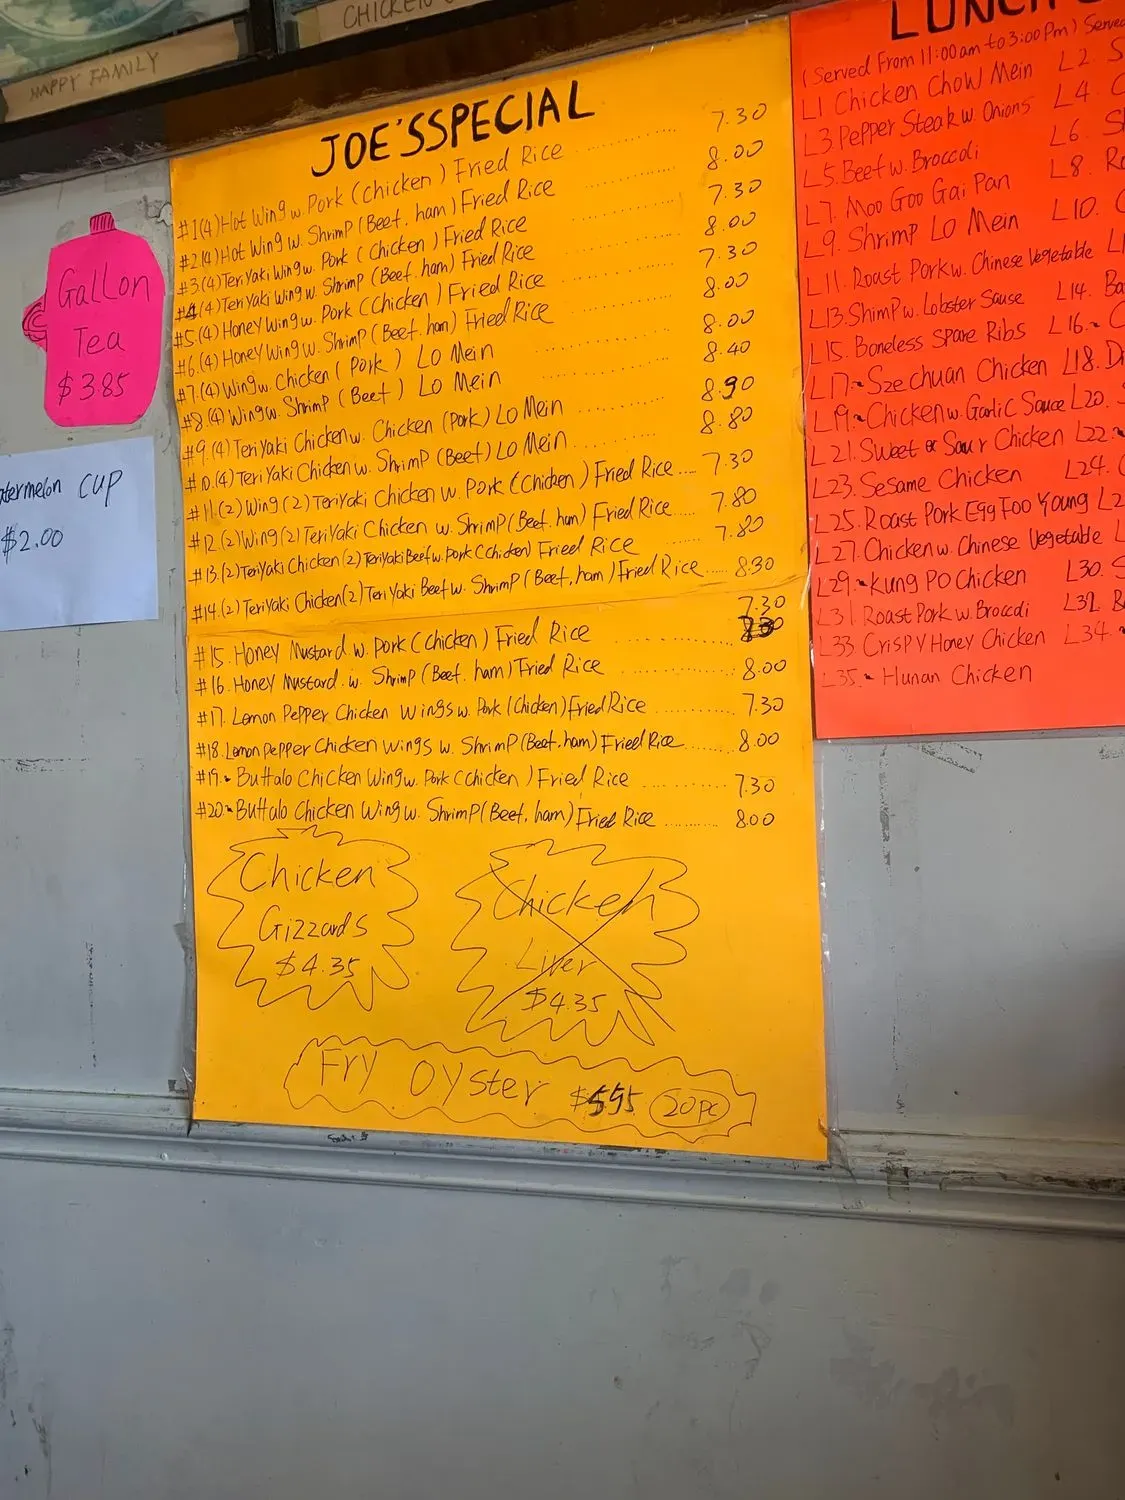 HAPPY FAMILY
CHICKEN
JOE'SSPECIAL
#1(4)Hot Wing w. Pork (chicken) Fried Rice ........ 7.30
#2(4)Hot Wing w. Shrimp (Beef. ham) Fried Rice ........ 8.00
#3(4)Teriyaki Wing w. Pork (Chicken) Fried Rice 7.30
#4(4)Teriyaki Wing w. Shrimp (Beef. ham) Fried Rice ........ 8.00
#5(4)Honey Wing w. Pork (Chicken) Fried Rice ........ 7.30
#6.(4)Honey Wing w. Shrimp (Beef. ham) Fried Rice ........ 8.00
#7(4)Wing w. Chicken (Pork) Lo Mein ........ 8.00
#8.(4)Wing w. Shrimp (Beef) Lo Mein ........ 8.40
#9.(4)Teriyaki Chicken w. Chicken (Pork) Lo Mein ........ 8.90
#10.(4)Teriyaki Chicken w. Shrimp (Beef) Lo Mein. ........ 8.80
#11.(2)Wing(2)Teriyaki Chicken w. Pork (Chicken) Fried Rice .... 7.30
#12.(2)Wing(2)Teriyaki Chicken w. Shrimp (Beef. ham) Fried Rice .... 7.80
#13.(2)Teriyaki Chicken(2)Teriyaki Beef w. Pork (Chicken) Fried Rice ........ 7.80
#14.(2)Teriyaki Chicken(2)Teriyaki Beef w. Shrimp (Beef, ham) Fried Rice ..... 8.30
#15. Honey Mustard w. Pork (Chicken) Fried Rice ........ 7.30
#16. Honey Mustard. w. Shrimp (Beef. ham) Fried Rice ........ 8.00
#17. Lemon Pepper Chicken Wings w. Pork (Chicken) Fried Rice ........ 7.30
#18. Lemon Pepper Chicken Wings w. Shrimp (Beef. ham) Fried Rice ........ 8.00
#19. Buffalo Chicken Wing w. Pork (Chicken) Fried Rice ........ 7.30
#20. Buffalo Chicken Wing w. Shrimp (Beef. ham) Fried Rice ........ 8.00
Chicken
Gizzards
$4.35
Chicken
Liver
$4.35
Fry Oyster $5.95 20pc
Gallon
Tea
$3.85
Cup
$2.00
LUNCH
(Served From 11:00am to 3:00Pm) Served
L1 Chicken Chow Mein L2
L3. Pepper Steak w. Onions L4
L5. Beef w. Broccoli L6
L7. Moo Goo Gai Pan L8.
L9. Shrimp Lo Mein L10.
L11. Roast Pork w. Chinese Vegetable
L13. Shimp w. Lobster Sause L14.
L15. Boneless Spare Ribs L16.
L17. Szechuan Chicken L18.
L19. Chicken w. Garlic Sauce L20.
L21. Sweet & Sour Chicken L22.
L23. Sesame Chicken L24.
L25. Roast Pork Egg Foo Young
L27. Chicken w. Chinese Vegetable
L29. Kung Po Chicken L30.
L31. Roast Pork w. Broccoli L32.
L33 Crispy Honey Chicken L34
L35. Hunan Chicken